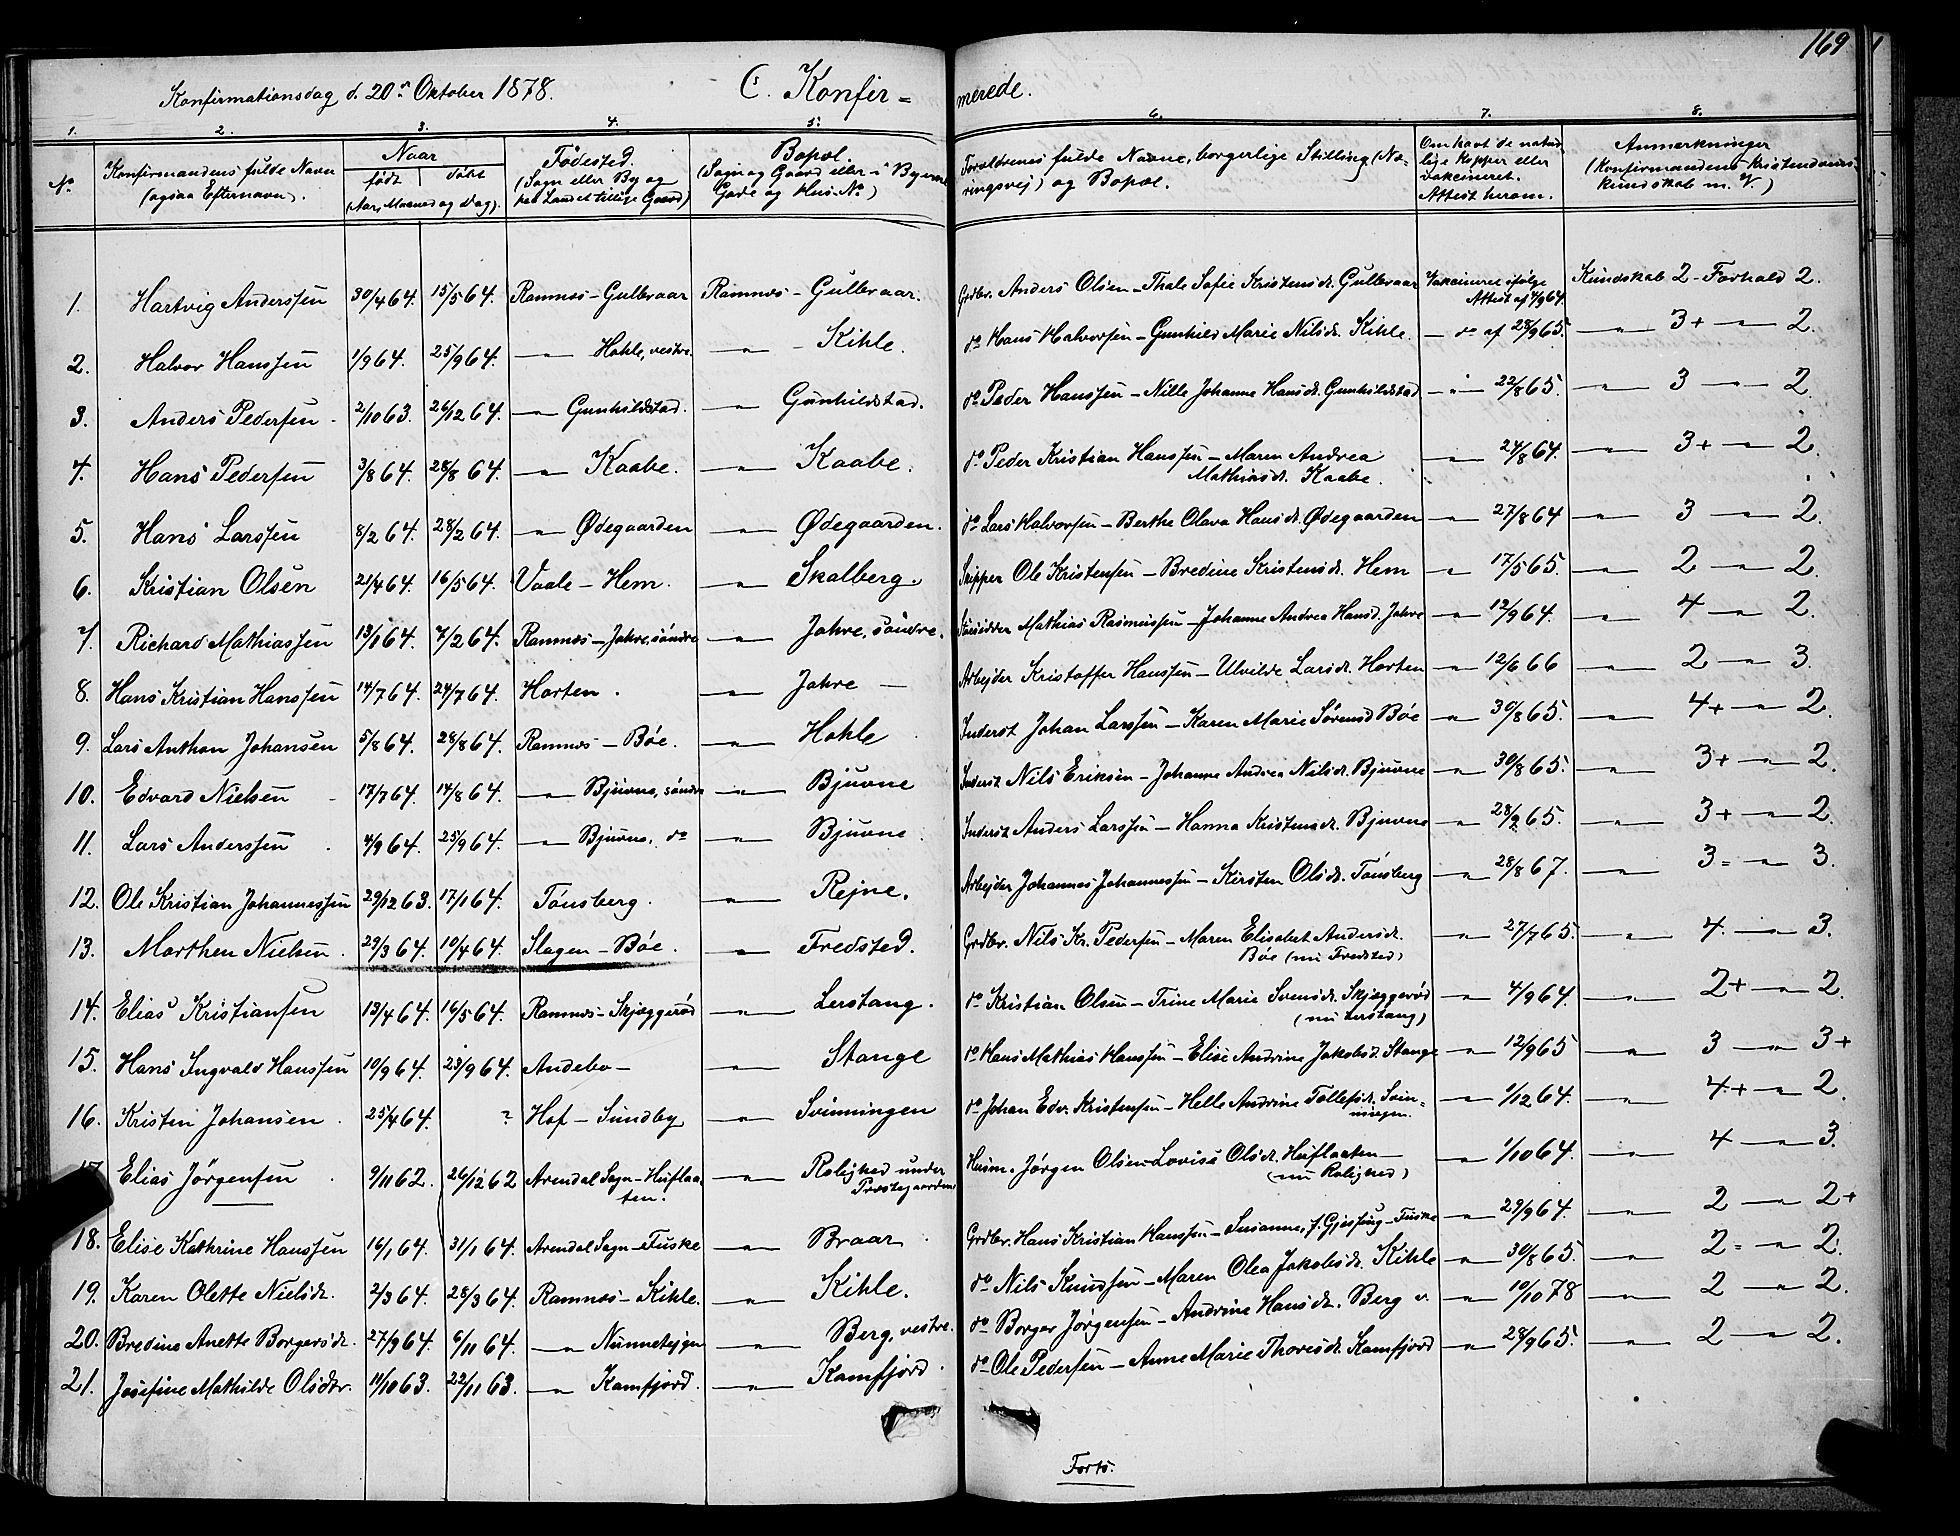 169
Konfirmationsdag d. 20de Oktober 1878. C. Konfir=
merede.
1. 2. 3. 4. 5. 6. 7. 8.
No. Konfirmandens fulde Navn (ogsaa Efternavn). Naar født døbt (Aar, Maaned og Dag). Fødested. (Sogn eller By og paa Landet tillige Gaard) Bopæl. (Sogn og Gaard eller i Byerne Gade og Hus No.) Forældrenes fulde Navne, borgerlige Stilling (Næringsvej) og Bopæl. Om havt de naturlige Kopper eller vakcineret. Attest herom. Anmærkninger (Konfirmandens Kristendomskundskab m. V.)
1. Hartvig Anderssen 30/4 64. 15/5 64. Ramnæs - Gulbraar Ramnæs - Gulbraar. Grdbr. Anders Olsen - Thale Sofie Kristensdr. Gulbraar Vakcineret ifølge Attest af 4/9 64. Kundskab 2 - Forhold 2.
2. Halvor Hanssen 1/9 64. 25/9 64. -"- Hohle, vestre. -"- Kihle. do Hans Halvorsen - Gunhild Marie Nilsdr. Kihle. - do af 28/9 65. -"- 3+ -"- 2.
3. Anders Pedersen 2/10 63. 26/12 64. -"- Gunhildstad. -"- Gunhildstad. do Peder Hanssen - Nille Johanne Hansdr. Gunhildstad -"- 22/8 65. -"- 3 -"- 2.
4. Hans Pedersen 3/8 64. 28/8 64. -"- Kaabe. -"- Kaabe. do Peder Kristian Hanssen - Maren Andrea -"- 24/8 64. -"- 3+ -"- 2.
Mathiasdr. Kaabe.
5. Hans Larssen 8/2 64. 28/2 64. -"- Ødegaarden -"- Ødegaarden. do Lars Halvorsen - Berthe Olava Hansdr. Ødegaarden -"- 27/8 64 -"- 3 -"- 2.
6. Kristian Olsen 21/4 64. 16/5 64. Vaale - Hem. -"- Skalberg. Skipper Ole Kristensen - Bredine Kristensdr. Hem -"- 17/5 65. -"- 2 -"- 2.
7. Richard Mathiassen 13/1 64. 7/2 64. Ramnæs - Jahre, søndre -"- Jahre, søndre. Mathias Rasmussen - Johanne Andrea Hansd. Jahre -"- 12/9 64. -"- 4 -"- 2.
8. Hans Kristian Hanssen 14/7 64. 24/7 64. Horten. -"- Jahre - Arbejder Kristoffer Hanssen - Ulvilde Larsdr. Horten -"- 12/6 66 -"- 2 -"- 3.
9. Lars Anthon Johansen 5/8 64. 28/8 64. Ramnæs - Bøe. -"- Hohle Inderst Johan Larssen - Karen Marie Sørensd Bøe -"- 30/8 65. -"- 4+ -"- 2.
10. Edvard Nielsen 17/7 64. 14/8 64. -"- Bjuvne, søndre -"- Bjuvne Inderst Nils Eriksen - Johanne Andrea Nilsdr. Bjuvne -"- 30/8 65. -"- 3+ -"- 2.
11. Lars Anderssen 4/9 64. 25/9 64. -"- Bjuvne, do -"- Bjuvne Inderst Anders Larssen - Hanna Kristensdr. Bjuvne -"- 28/9 65. -"- 3+ -"- 2.
12. Ole Kristian Johannessen 29/12 63. 17/1 64. Tønsberg. -"- Rejne. Arbejder Johannes Johannessen - Kirsten Olsdr. Tønsberg -"- 28/8 67. -"- 3= -"- 3.
13. Marthen Nielsen. 29/3 64. 10/4 64. Slagen - Bøe. -"- Fredsted. Grdbr. Nils Kr. Pedersen - Maren Elisabet Andersdr. -"- 27/7 65. -"- 4. -"- 3.
Bøe (nu Fredsted)
14. Elias Kristiansen 13/4 64. 16/5 64. Ramnæs - Skjæggerød -"- Lerstang. do Kristian Olsen - Trine Marie Svensdr. Skjæggerød -"- 4/9 64. -"- 2+ -"- 2.
(nu Lerstang)
15. Hans Ingvald Hanssen 10/9 64. 23/9 64. Andebo - -"- Stange do Hans Mathias Hanssen - Elise Andrine Jakobsd. Stange -"- 12/9 65 -"- 3 -"- 3+
16. Kristen Johansen. 25/4 64. ? Hof - Sundby -"- Svinningen do Johan Edv. Kristensen - Helle Andrine Tollefsdr. Svin= -"- 1/12 64. -"- 4+ -"- 2.
ningen.
17. Elias Jørgensen 9/11 62. 26/12 62 Arendal Sogn - Huflaa- -"- Rolighed under Husm. Jørgen Olsen Lovise Olsdr. Huflaaten - -"- 1/10 64. -"- 4 -"- 3.
ten. Præstegaarden (nu Rolighed)
18. Elise Kathrine Hanssen 16/1 64. 31/1 64. Arendal Sogn - Fuske -"- Braar Grdbr. Hans Kristian Hanssen - Susanne, f. Gjessing - Fuske -"- 29/9 64. -"- 2 -"- 2+
19. Karen Olette Nielsdr. 2/3 64. 28/3 64. Ramnæs - Kihle. -"- Kihle. do Nils Knudsen - Maren Olea Jakobsdr. Kihle -"- 30/8 65. -"- 2= -"- 2.
20. Bredine Anette Borgersdr. 27/9 64. 6/11 64. -"- -"- Berg, vestre. do Borger Jørgensen - Andrine Hansdr. Berg v. -"- 10/10 78 -"- 2 -"- 2.
21. Josefine Mathilde Olsdtr. 11/10 63. 22/11 63. -"- Kamfjord. -"- Kamfjord. do Ole Pedersen - Anne Marie Thoresdr. Kamfjord -"- 28/9 65. -"- 2 -"- 2.
Forts.